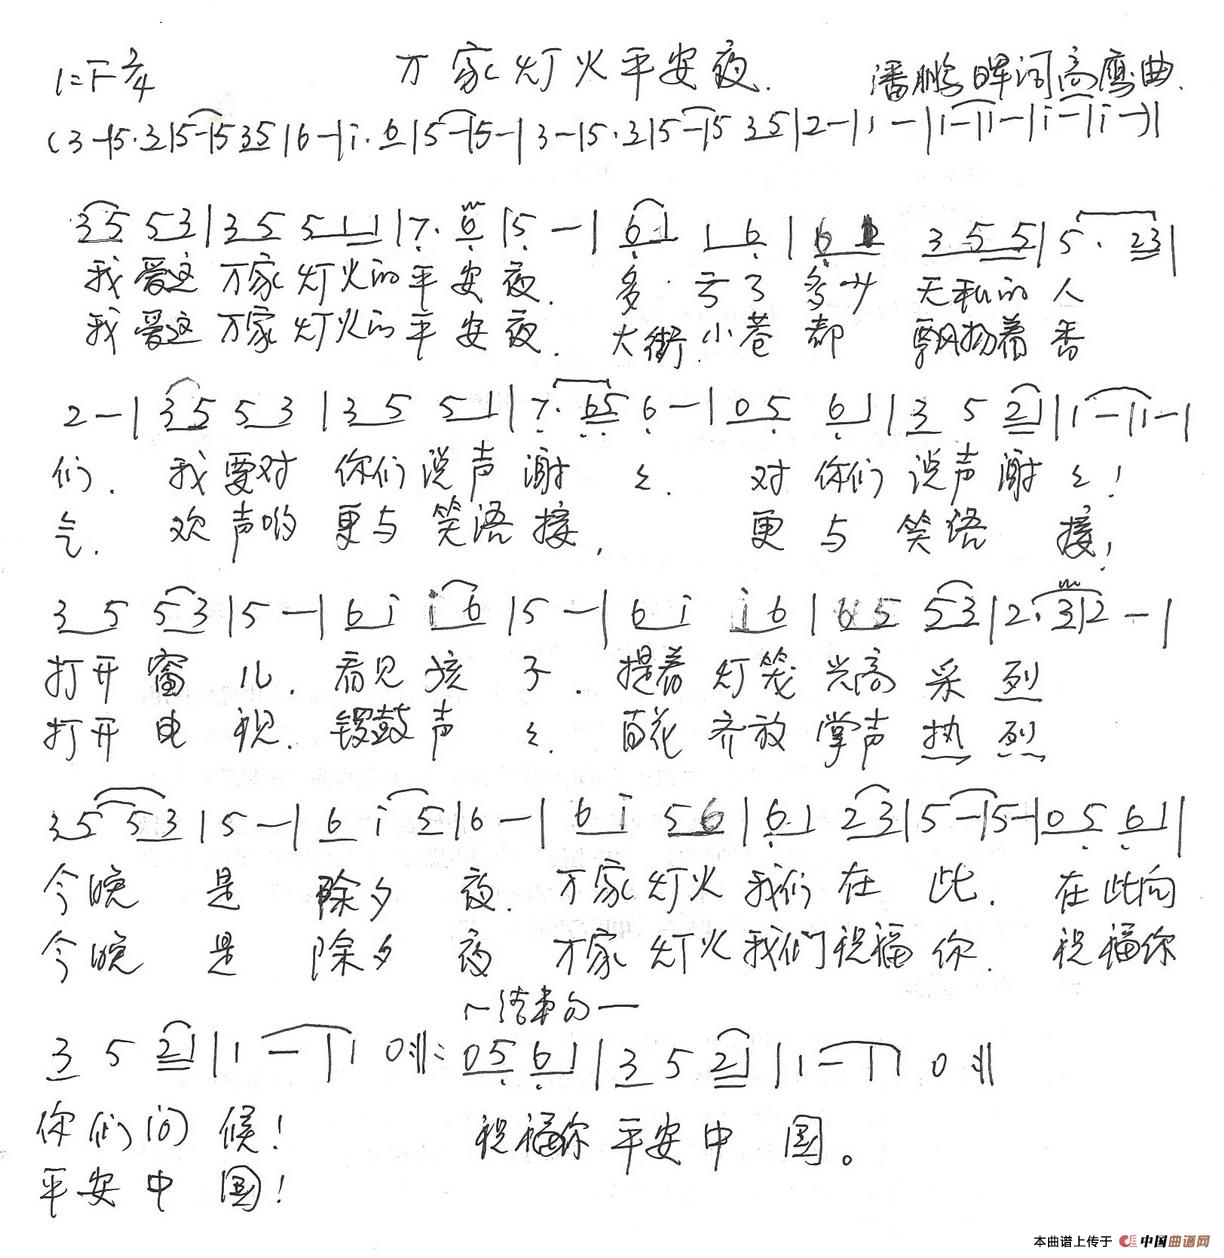 1=F 2/4 万家灯火平安夜. 潘鹏晖词 高鹰曲.
(3-|5·3|5-|5 35|6-|i·6|5-|5-|3-|5·3|5-|5 35|2-|1-|1-|1-|i-|i-)|
35 53|35 511|7·6|5-|61 16|61 355|5·23|
我爱这万家灯火的平安夜. 多亏了多少无私的人
我爱这万家灯火的平安夜. 大街小巷都飘扬着香
2-|35 53|35 51|7·65|6-|05 61|3 5 21|1-|1-|
们. 我要对你们说声谢々. 对你们说声谢々!
气. 欢声哟更与笑语接, 更与笑语接!
35 53|5-|6i i6|5-|6i i6|65 53|2·3|2-|
打开窗儿. 看见孩子. 提着灯笼兴高采烈
打开电视. 锣鼓声々. 百花齐放掌声热烈
35 53|5-|6i 5|6-|6i 56|61 23|5-|5-|05 61|
今晚是除夕夜. 万家灯火我们在此. 在此向
今晚是除夕夜 万家灯火我们祝福你. 祝福你
结束句
3 5 21|1-|1 0:‖: 05 61|3 5 21|1-|1 0‖
你们问候! 祝福你平安中国。
平安中国!
本曲谱上传于 中国曲谱网